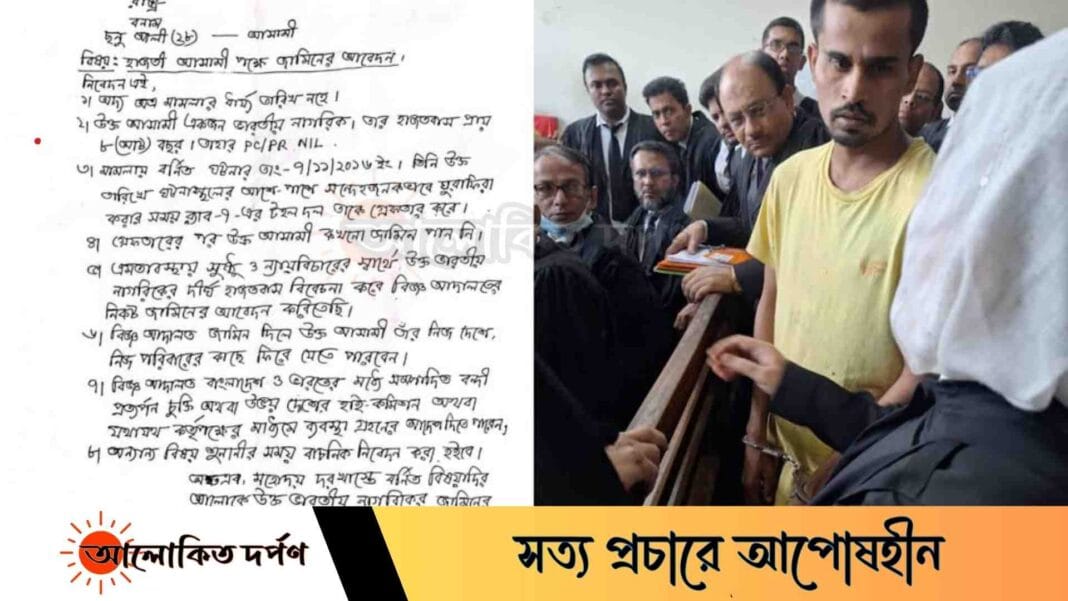 রাষ্ট্র
বনাম
ছনু আলী (২৮) — আসামী
বিষয়: হাজতী আসামী পক্ষে জামিনের আবেদন।
নিবেদন এই,
১। অদ্য অত্র মামলার ধার্য্য তারিখ নহে।
২। উক্ত আসামী একজন ভারতীয় নাগরিক। তার হাজতবাস প্রায়
৮(আট) বছর। তাহার PC/PR NIL.
৩। মামলায় বর্নিত ঘটনার তাং-৭/১১/২০১৬ইং। তিনি উক্ত
তারিখে ঘটনাস্থলের আশে পাশে সন্দেহজনকভাবে ঘুরাফিরা
করার সময় র‍্যাব-৭-এর টহল দল তাকে গ্রেফতার করে।
৪। গ্রেফতারের পর উক্ত আসামী কখনো জামিন পান নি।
৫। এমতাবস্থায় সুষ্ঠু ও ন্যায়বিচারের স্বার্থে উক্ত ভারতীয়
নাগরিকের দীর্ঘ হাজতবাস বিবেচনা করে বিজ্ঞ আদালতের
নিকট জামিনের আবেদন করিতেছি।
৬। বিজ্ঞ আদালত জামিন দিলে উক্ত আসামী তাঁর নিজ দেশে,
নিজ পরিবারের কাছে ফিরে যেতে পারবেন।
৭। বিজ্ঞ আদালত বাংলাদেশ ও ভারতের মধ্যে সম্পাদিত বন্দী
প্রত্যর্পন চুক্তি অথবা উভয় দেশের হাই-কমিশন অথবা
যথাযথ কর্তৃপক্ষের মাধ্যমে ব্যবস্থা গ্রহনের আদেশ দিতে পারেন,
৮। অন্যান্য বিষয় শুনানীর সময় বাচনিক নিবেদন করা হইবে।
অতএব, মহোদয় দরখাস্তে বর্নিত বিষয়াদির
আলোকে উক্ত ভারতীয় নাগরিকের জামিনের
আলোকিত দর্পণ
সত্য প্রচারে আপোষহীন